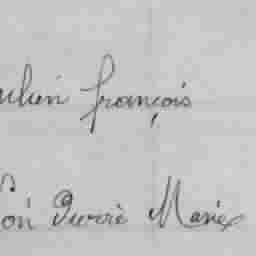 ulien françois
on Pierre Marie